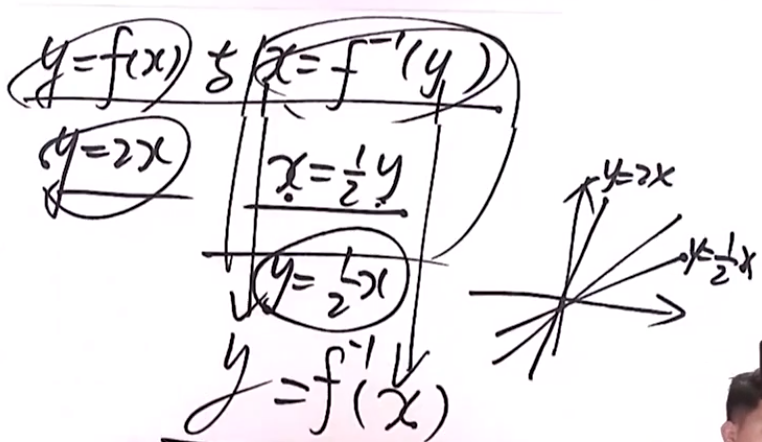 y=f(x) 与 x=f⁻¹(y)
y=2x
x=½y
y=½x
y=f⁻¹(x)
y=2x
y=½x